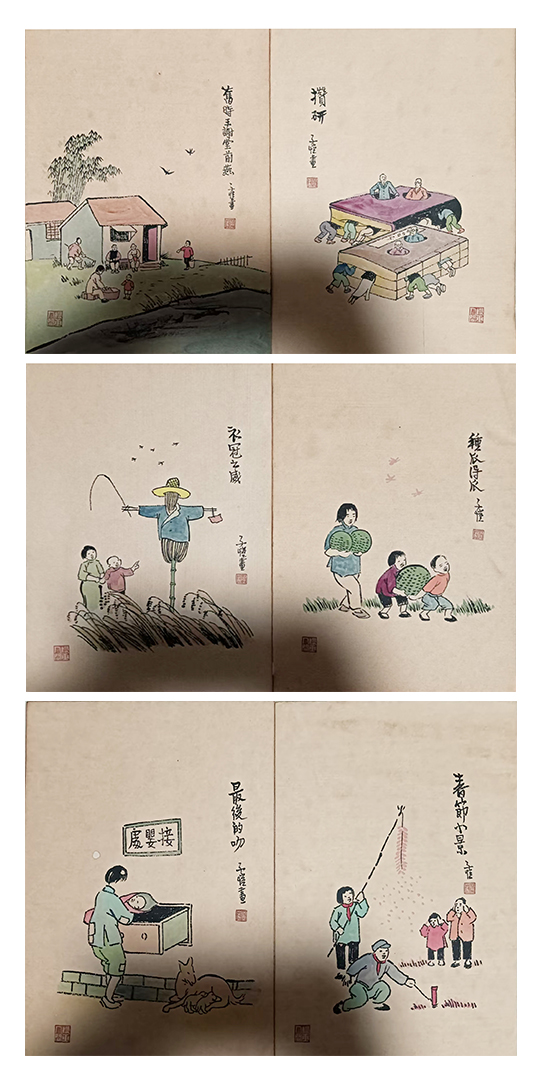 舊時王謝堂前燕
子愷畫
攢研
子愷畫
衣冠之威
子愷畫
種瓜得瓜
子愷
最後的吻
子愷畫
接嬰處
春節小景
子愷